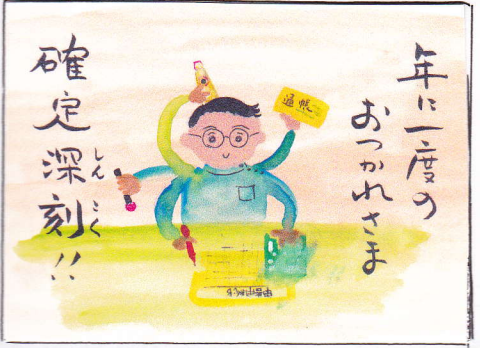 年に一度の
おつかれさま
確定深刻!!
しんこく
通帳